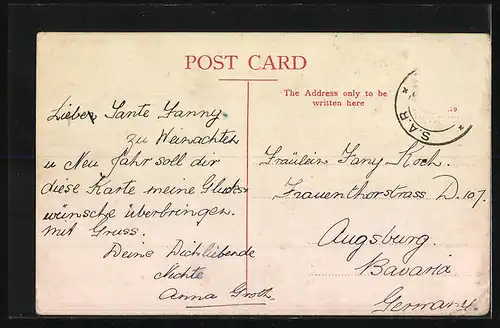 POST CARD
The Address only to be
written here
S.A.R.
Lieber Tante Fanny
zu Weinachten
u Neu Jahr soll dir
diese Karte meine Glücks-
wünsche überbringen.
mit Gruss.
Deine Dichliebende
Nichte
Anna Groth
Fräulein Fany Koch.
Frauenthorstrass D.107.
Augsburg.
Bavaria
Germany